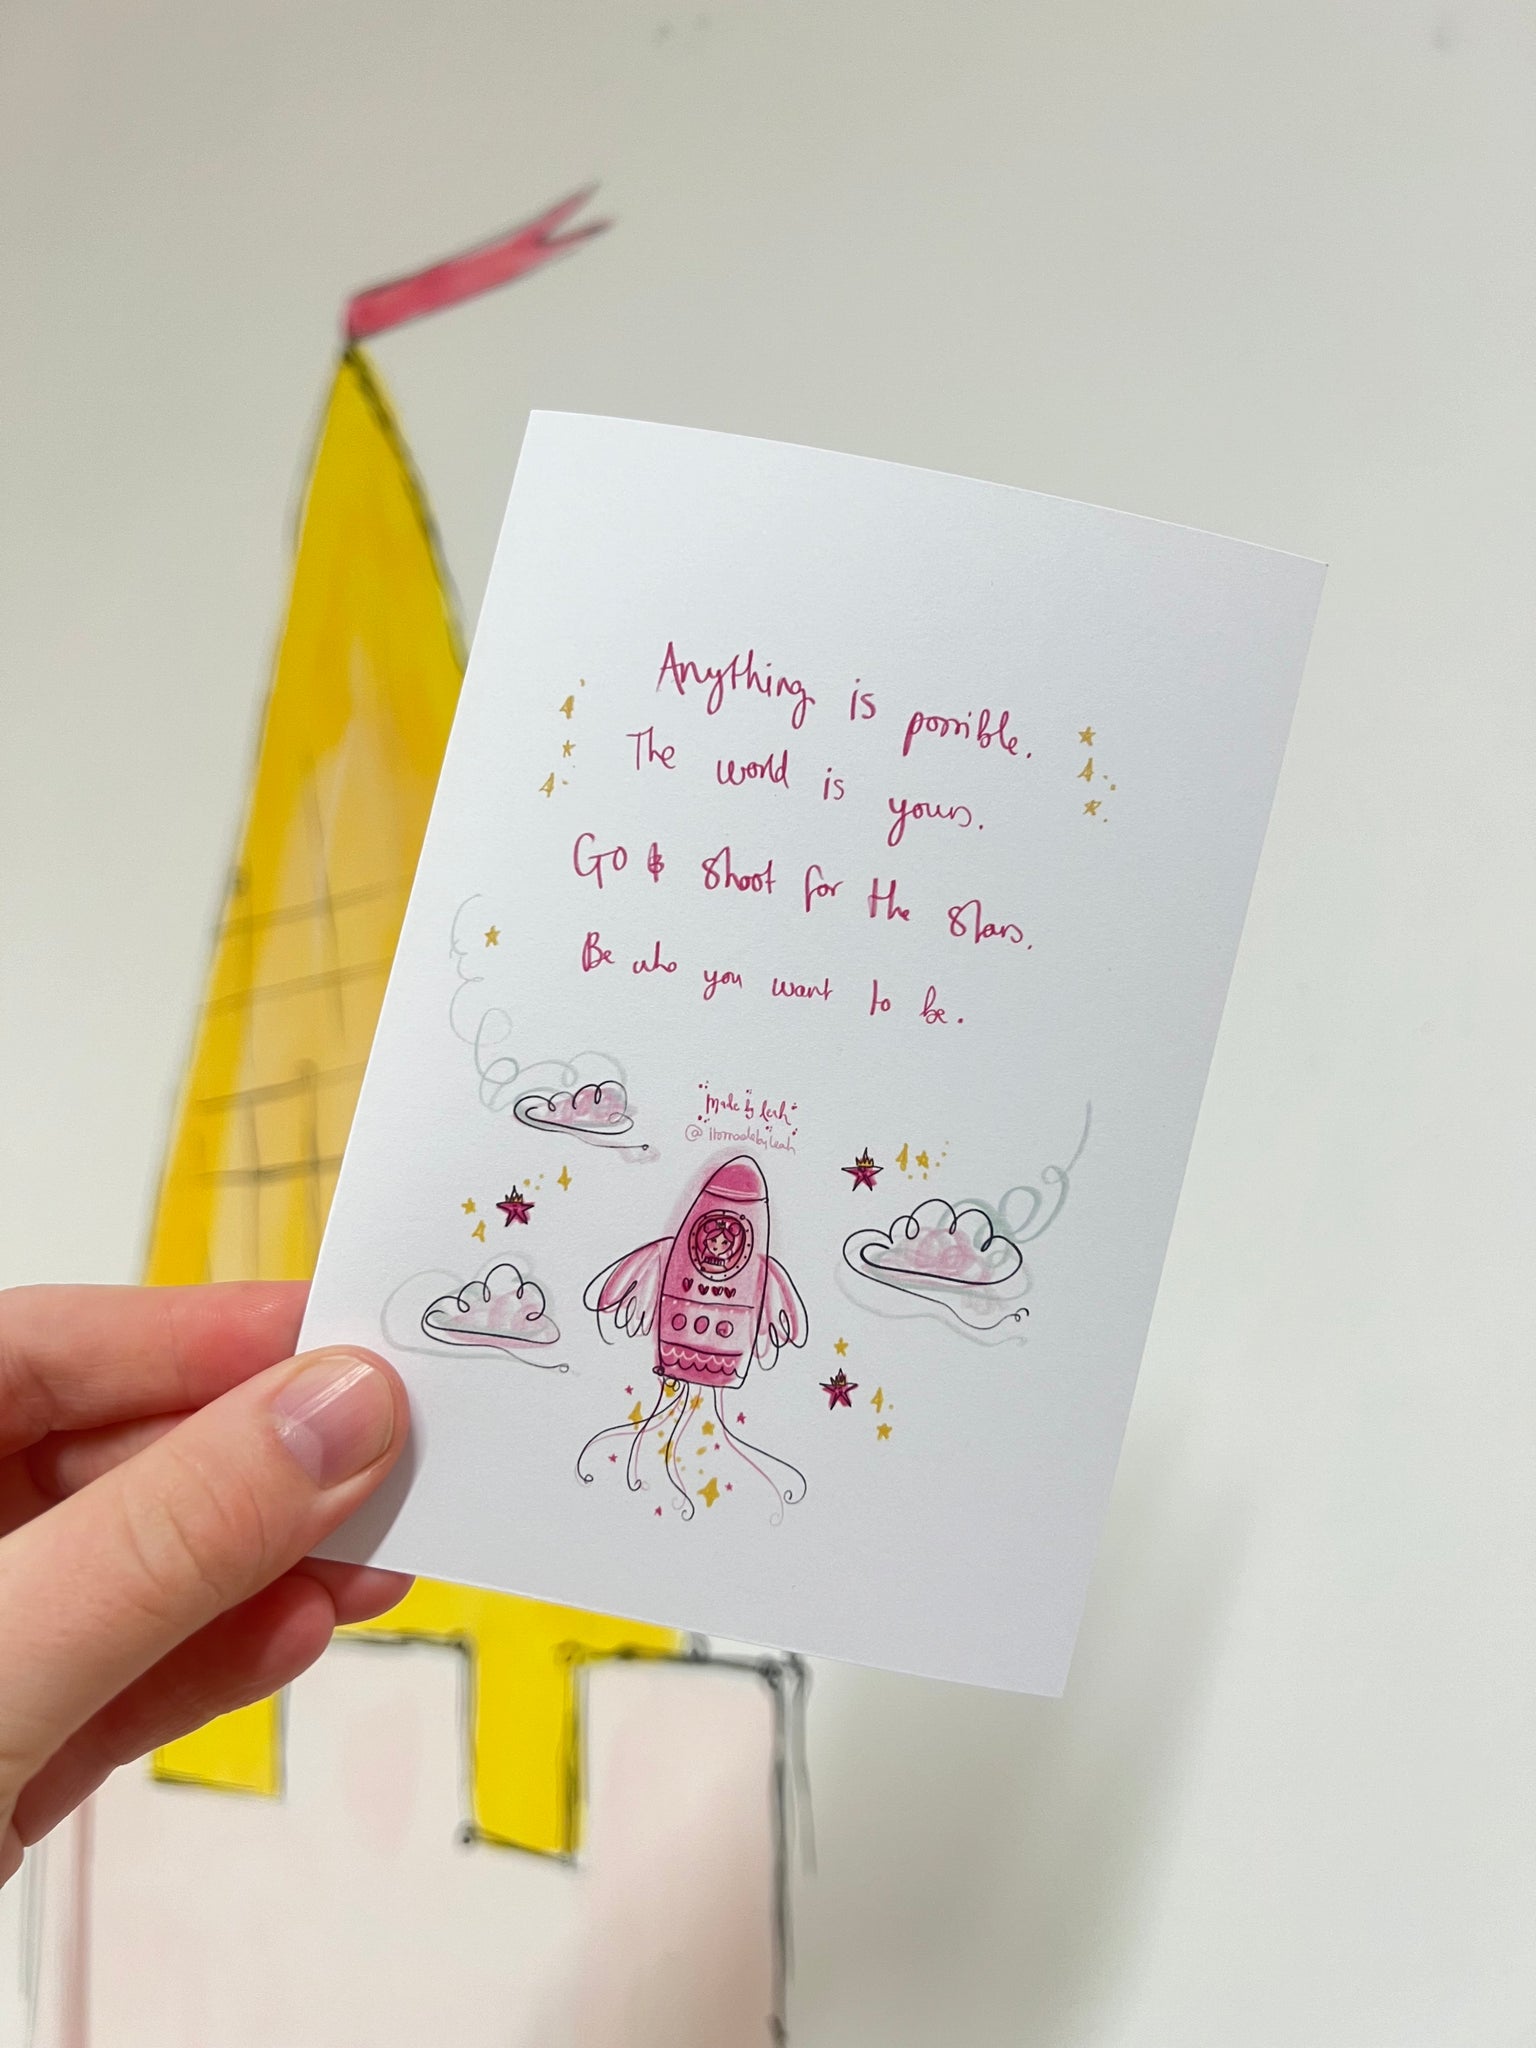 Anything is possible.
The world is yours.
Go & shoot for the stars.
Be who you want to be.
made by leah